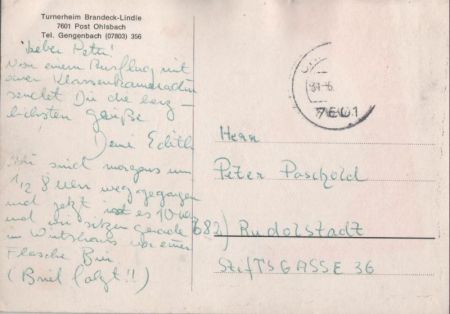 Turnerheim Brandeck-Lindle
7601 Post Ohlsbach
Tel. Gengenbach (07803) 356
Lieber Peter!
Von einem Ausflug mit
einer Klassenkameradin
sendet Dir die herz-
lichsten Grüße
Deine Edith
Wir sind morgens um
1/2 8 Uhr weggegangen
und jetzt ist es 10 Uhr
und wir sitzen gerade
im Wirtshaus vor einer
Flasche Bier.
(Brief folgt!!)
7601
Herr
Peter Paschold
682) Rudolstadt
StifTSGASSE 36